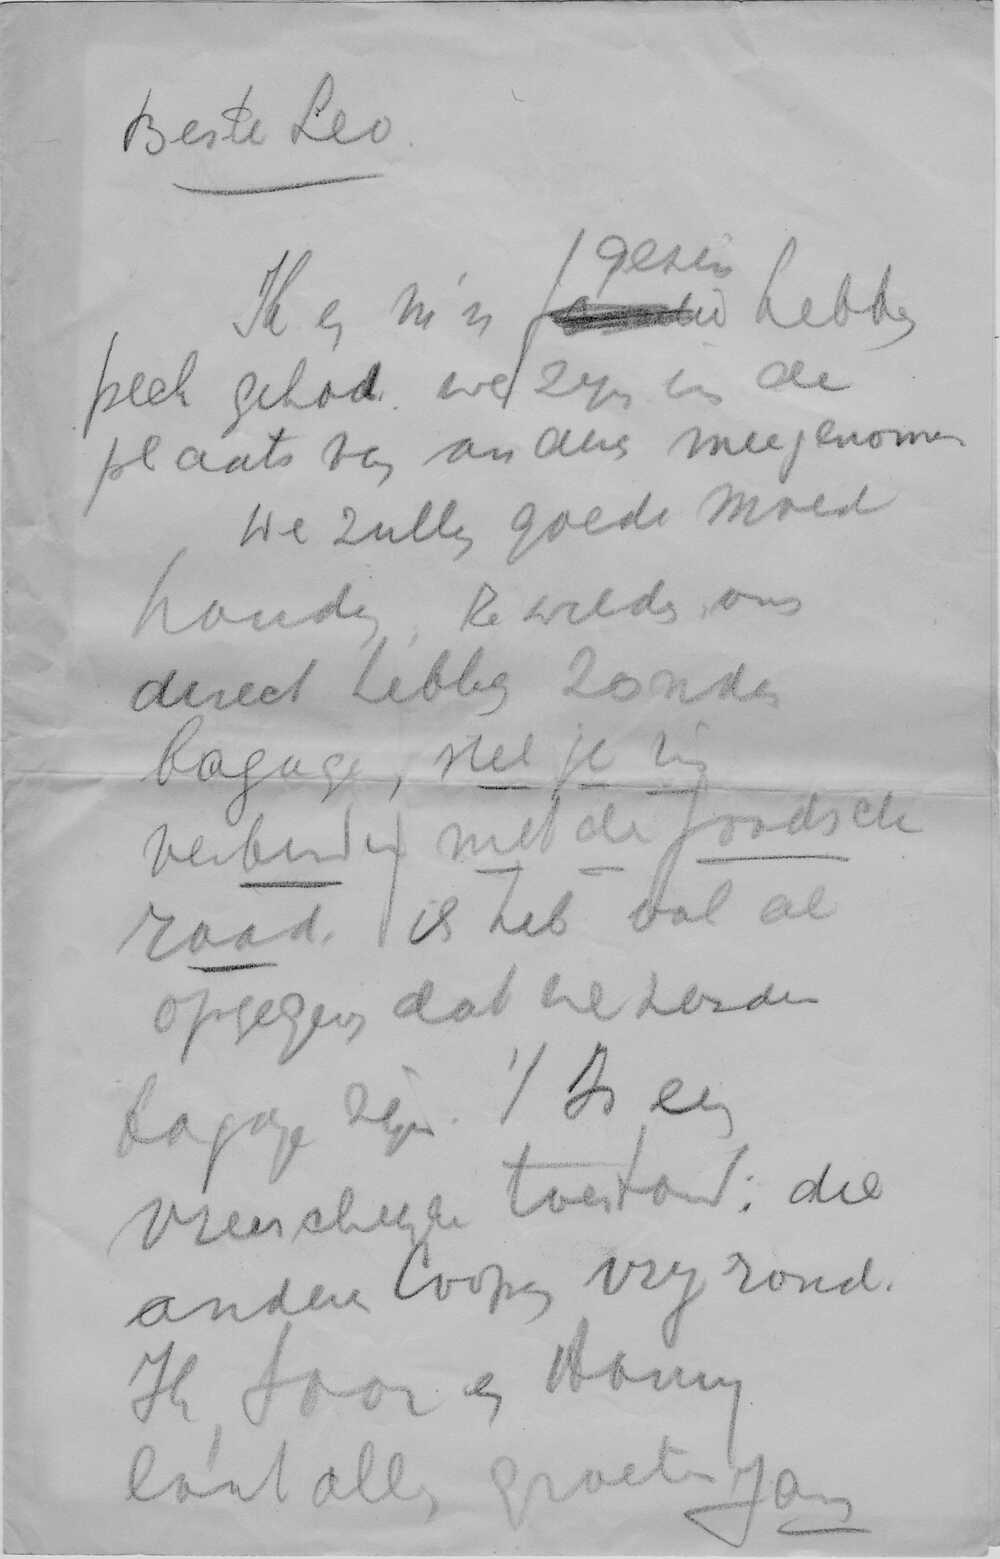 Beste Leo.
Ik en m'n gezin hebben
pech gehad. we zijn in de
plaats van anderen meegenomen
We zullen goede moed
houden, Ze wilden ons
direct hebben zonder
bagage, stel je in
verbinding met de Joodsche
raad. ik heb wel al
opgegeven dat we zonder
bagage zijn. 't Is een
vreeschelijke toestand: die
anderen loopen vrij rond.
Ik, Door en Honny
laat allen groeten Jan